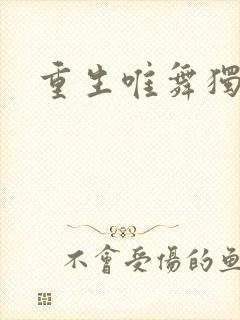 重生唯舞獨
不會受傷的魚